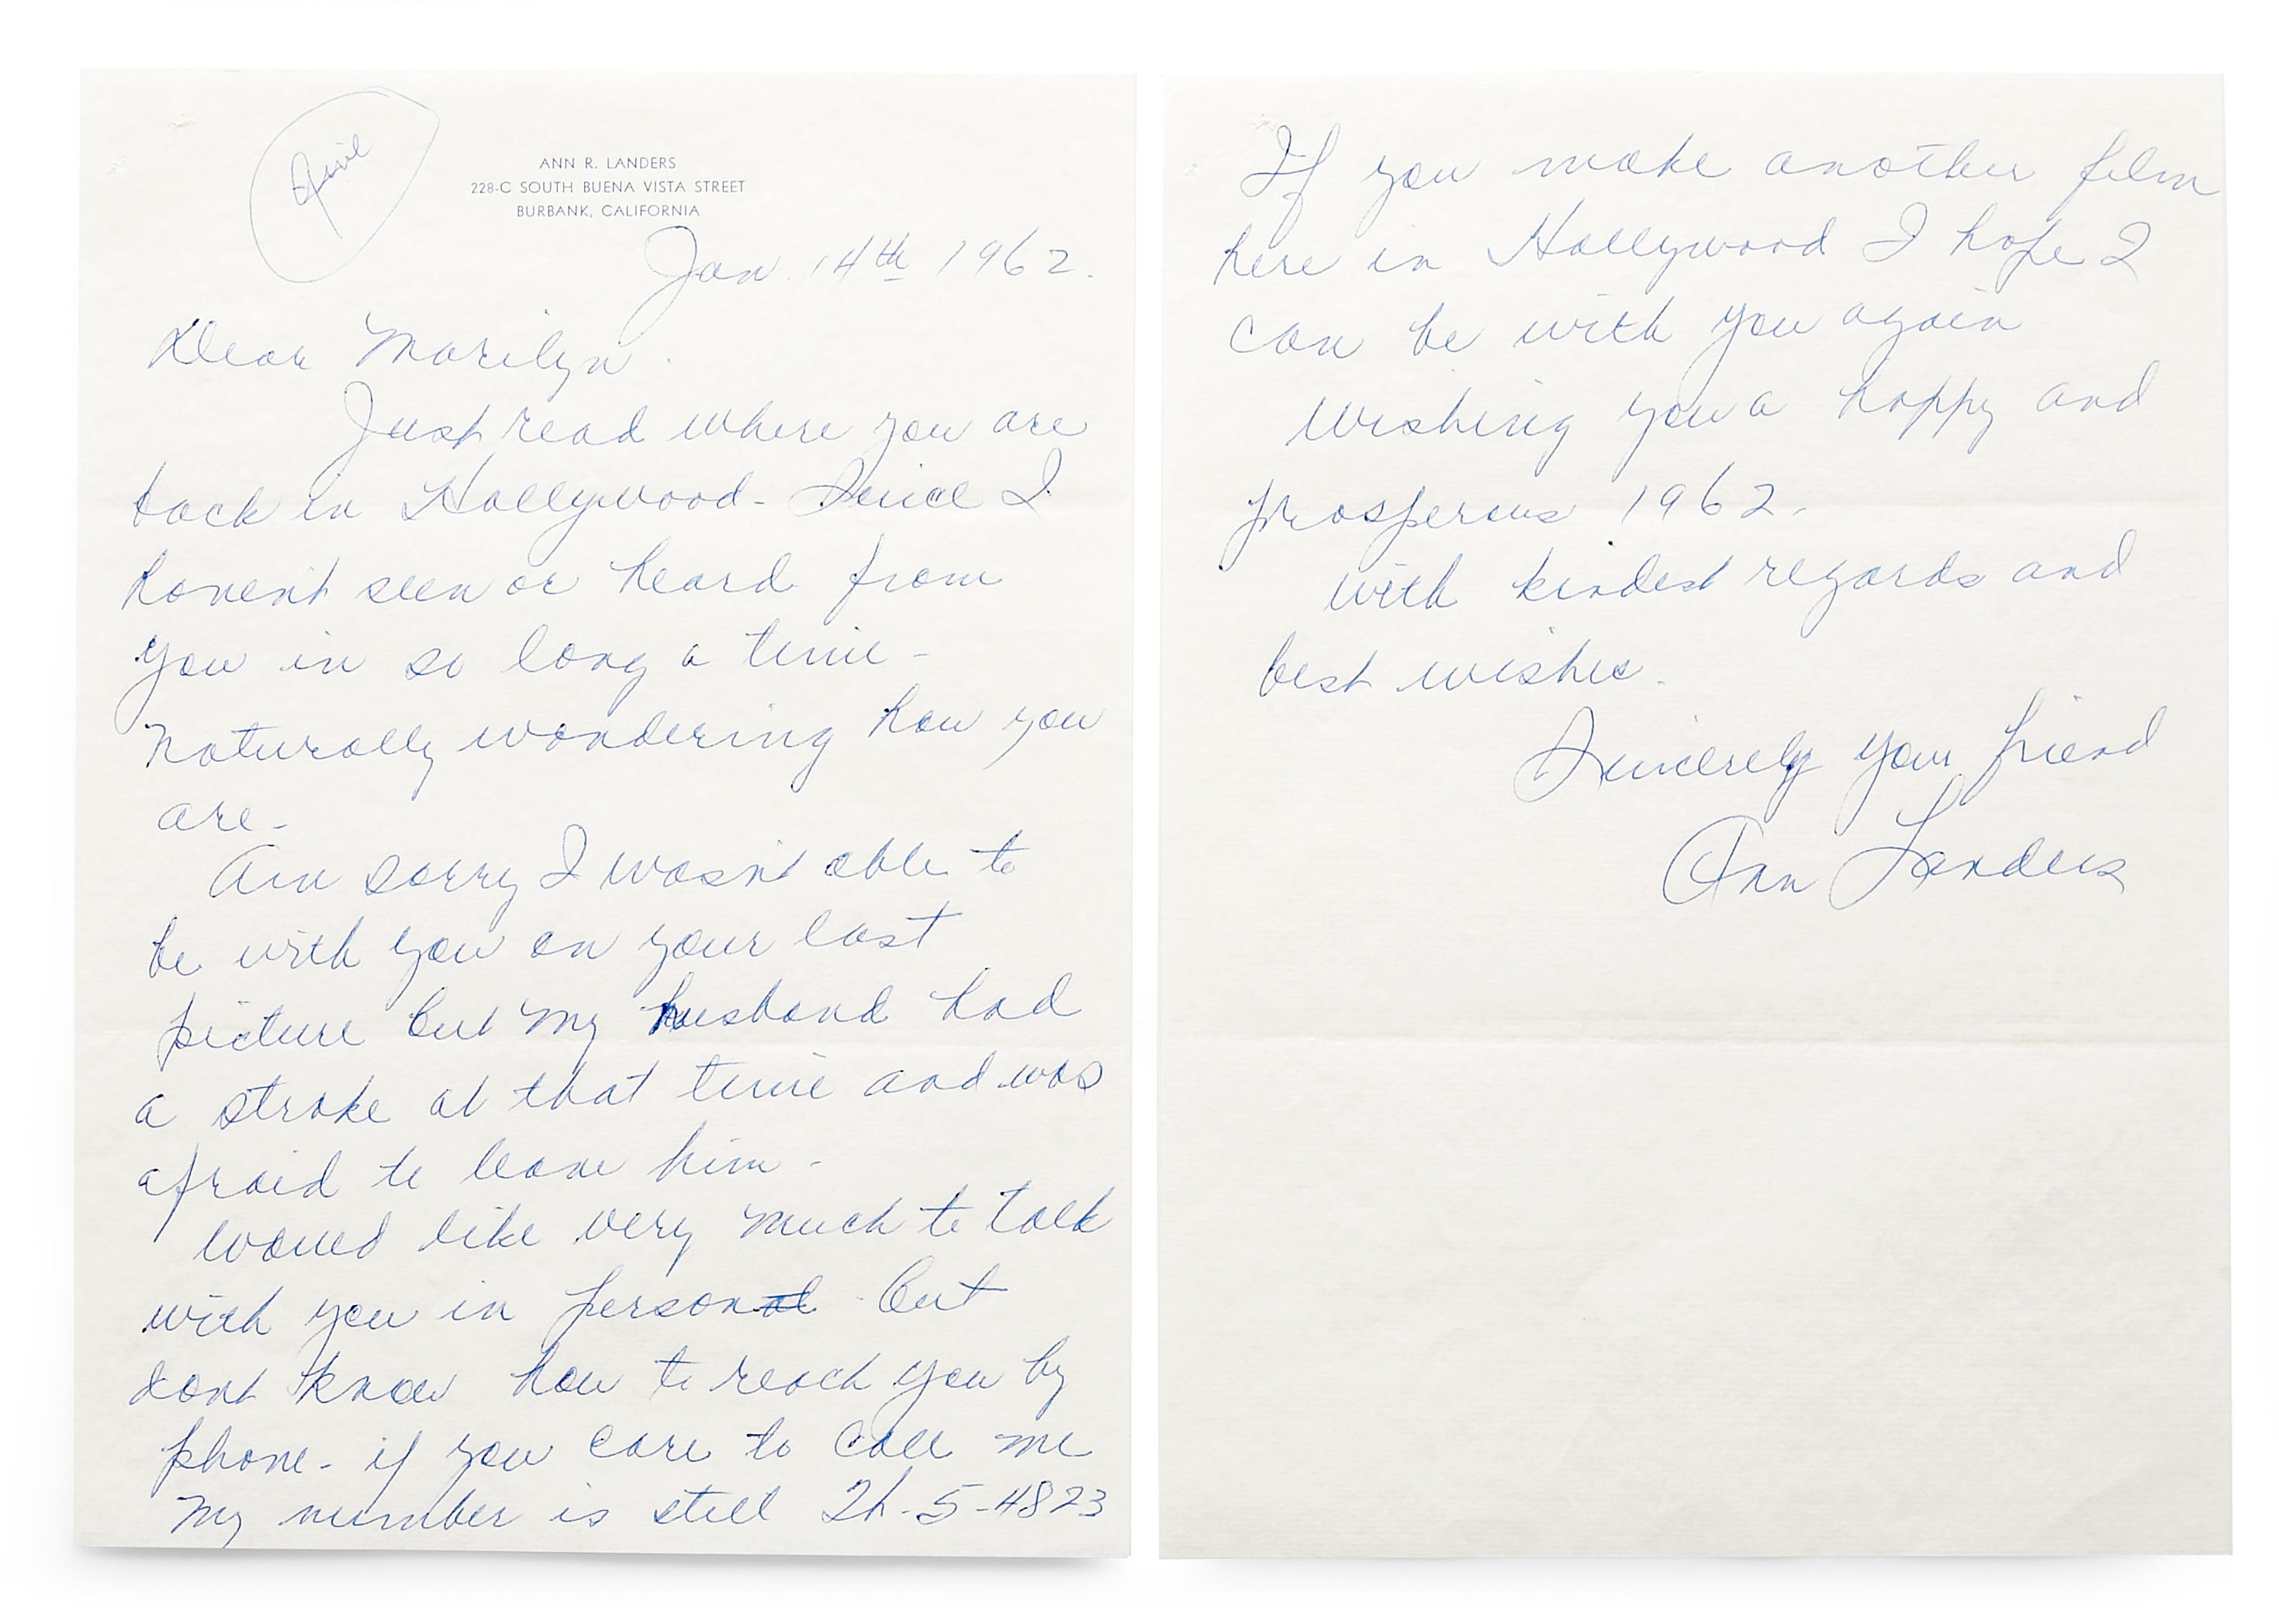 ANN R. LANDERS
228-C SOUTH BUENA VISTA STREET
BURBANK, CALIFORNIA
Jan. 14th 1962.
Dear Marilyn.
Just read where you are
back in Hollywood - Since I
havent seen or heard from
you in so long a time -
Naturally wondering how you
are -
Am sorry I wasnt able to
be with you on your last
picture but my husband had
a stroke at that time and was
afraid to leave him -
Would like very much to talk
with you in person but
dont know how to reach you by
phone - if you care to call me
my number is still Th-5-4823
If you make another film
here in Hollywood I hope I
can be with you again
Wishing you a happy and
prosperous 1962.
With kindest regards and
best wishes.
Sincerely your friend
Ann Landers